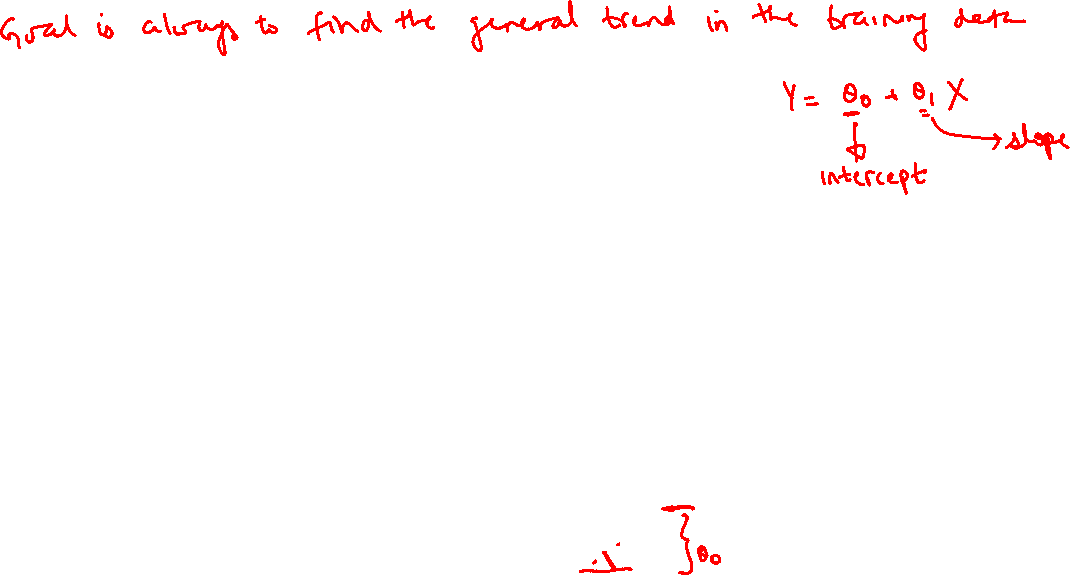 Goal is always to find the general trend in the training data
Y = θ₀ + θ₁ X
slope
intercept
θ₀